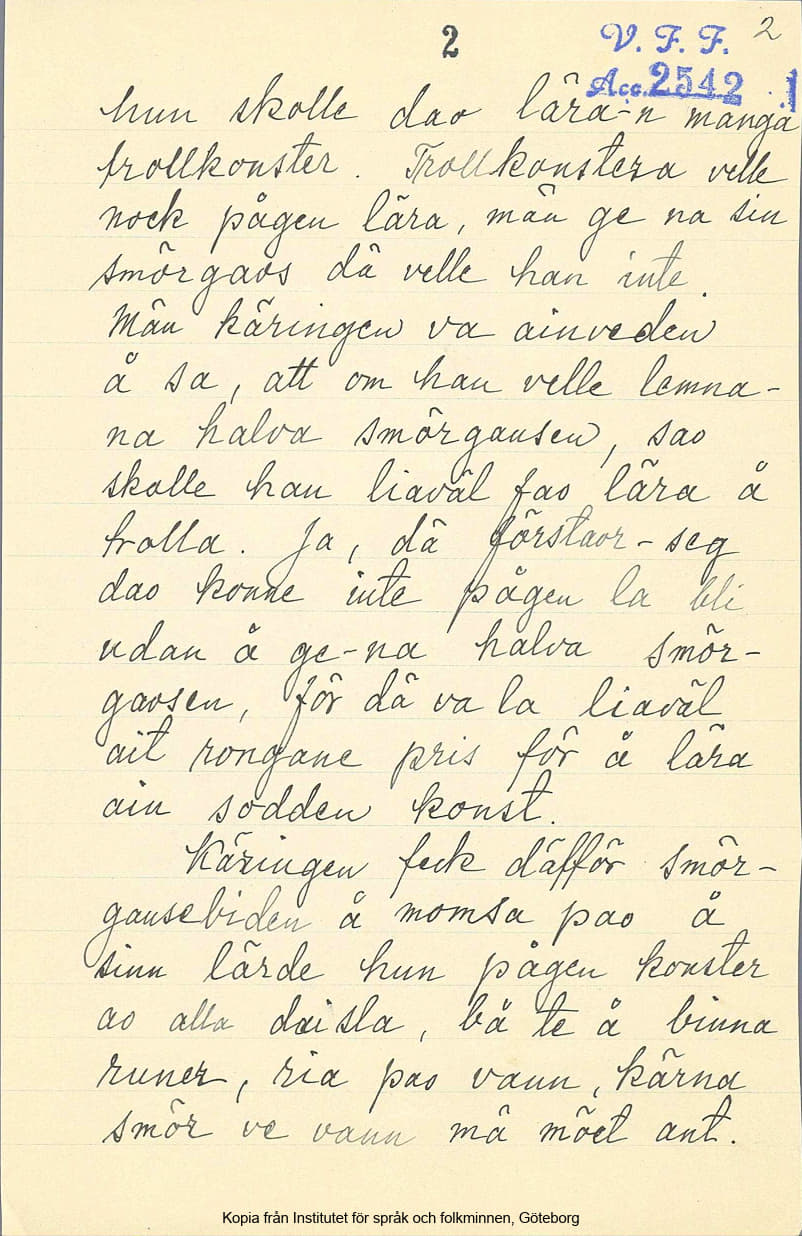 2
2
V. F. F.
Acc. 2542 :1
hun skolle dao lära-n många
trollkonster. Trollkonstera velle
nock pågen lära, män ge na sin
smörgaos dä velle han inte.
Män käringen va ainveden
å sa, att om han velle lemna-
na halva smörgausen, sao
skolle han liaväl fao lära å
trolla. Ja, dä förstaor-seg
dao konne inte pågen la bli
udan å ge-na halva smör-
gaosen, för dä va la liaväl
ait rongane pris för å lära
ain sodden konst.
Käringen feck däfför smör-
gausebiden å momsa pao å
sinn lärde hun pågen konster
ao alla daisla, bå te å binna
runer, ria pao vann, kärna
smör ve vann mä möet ant.
Kopia från Institutet för språk och folkminnen, Göteborg